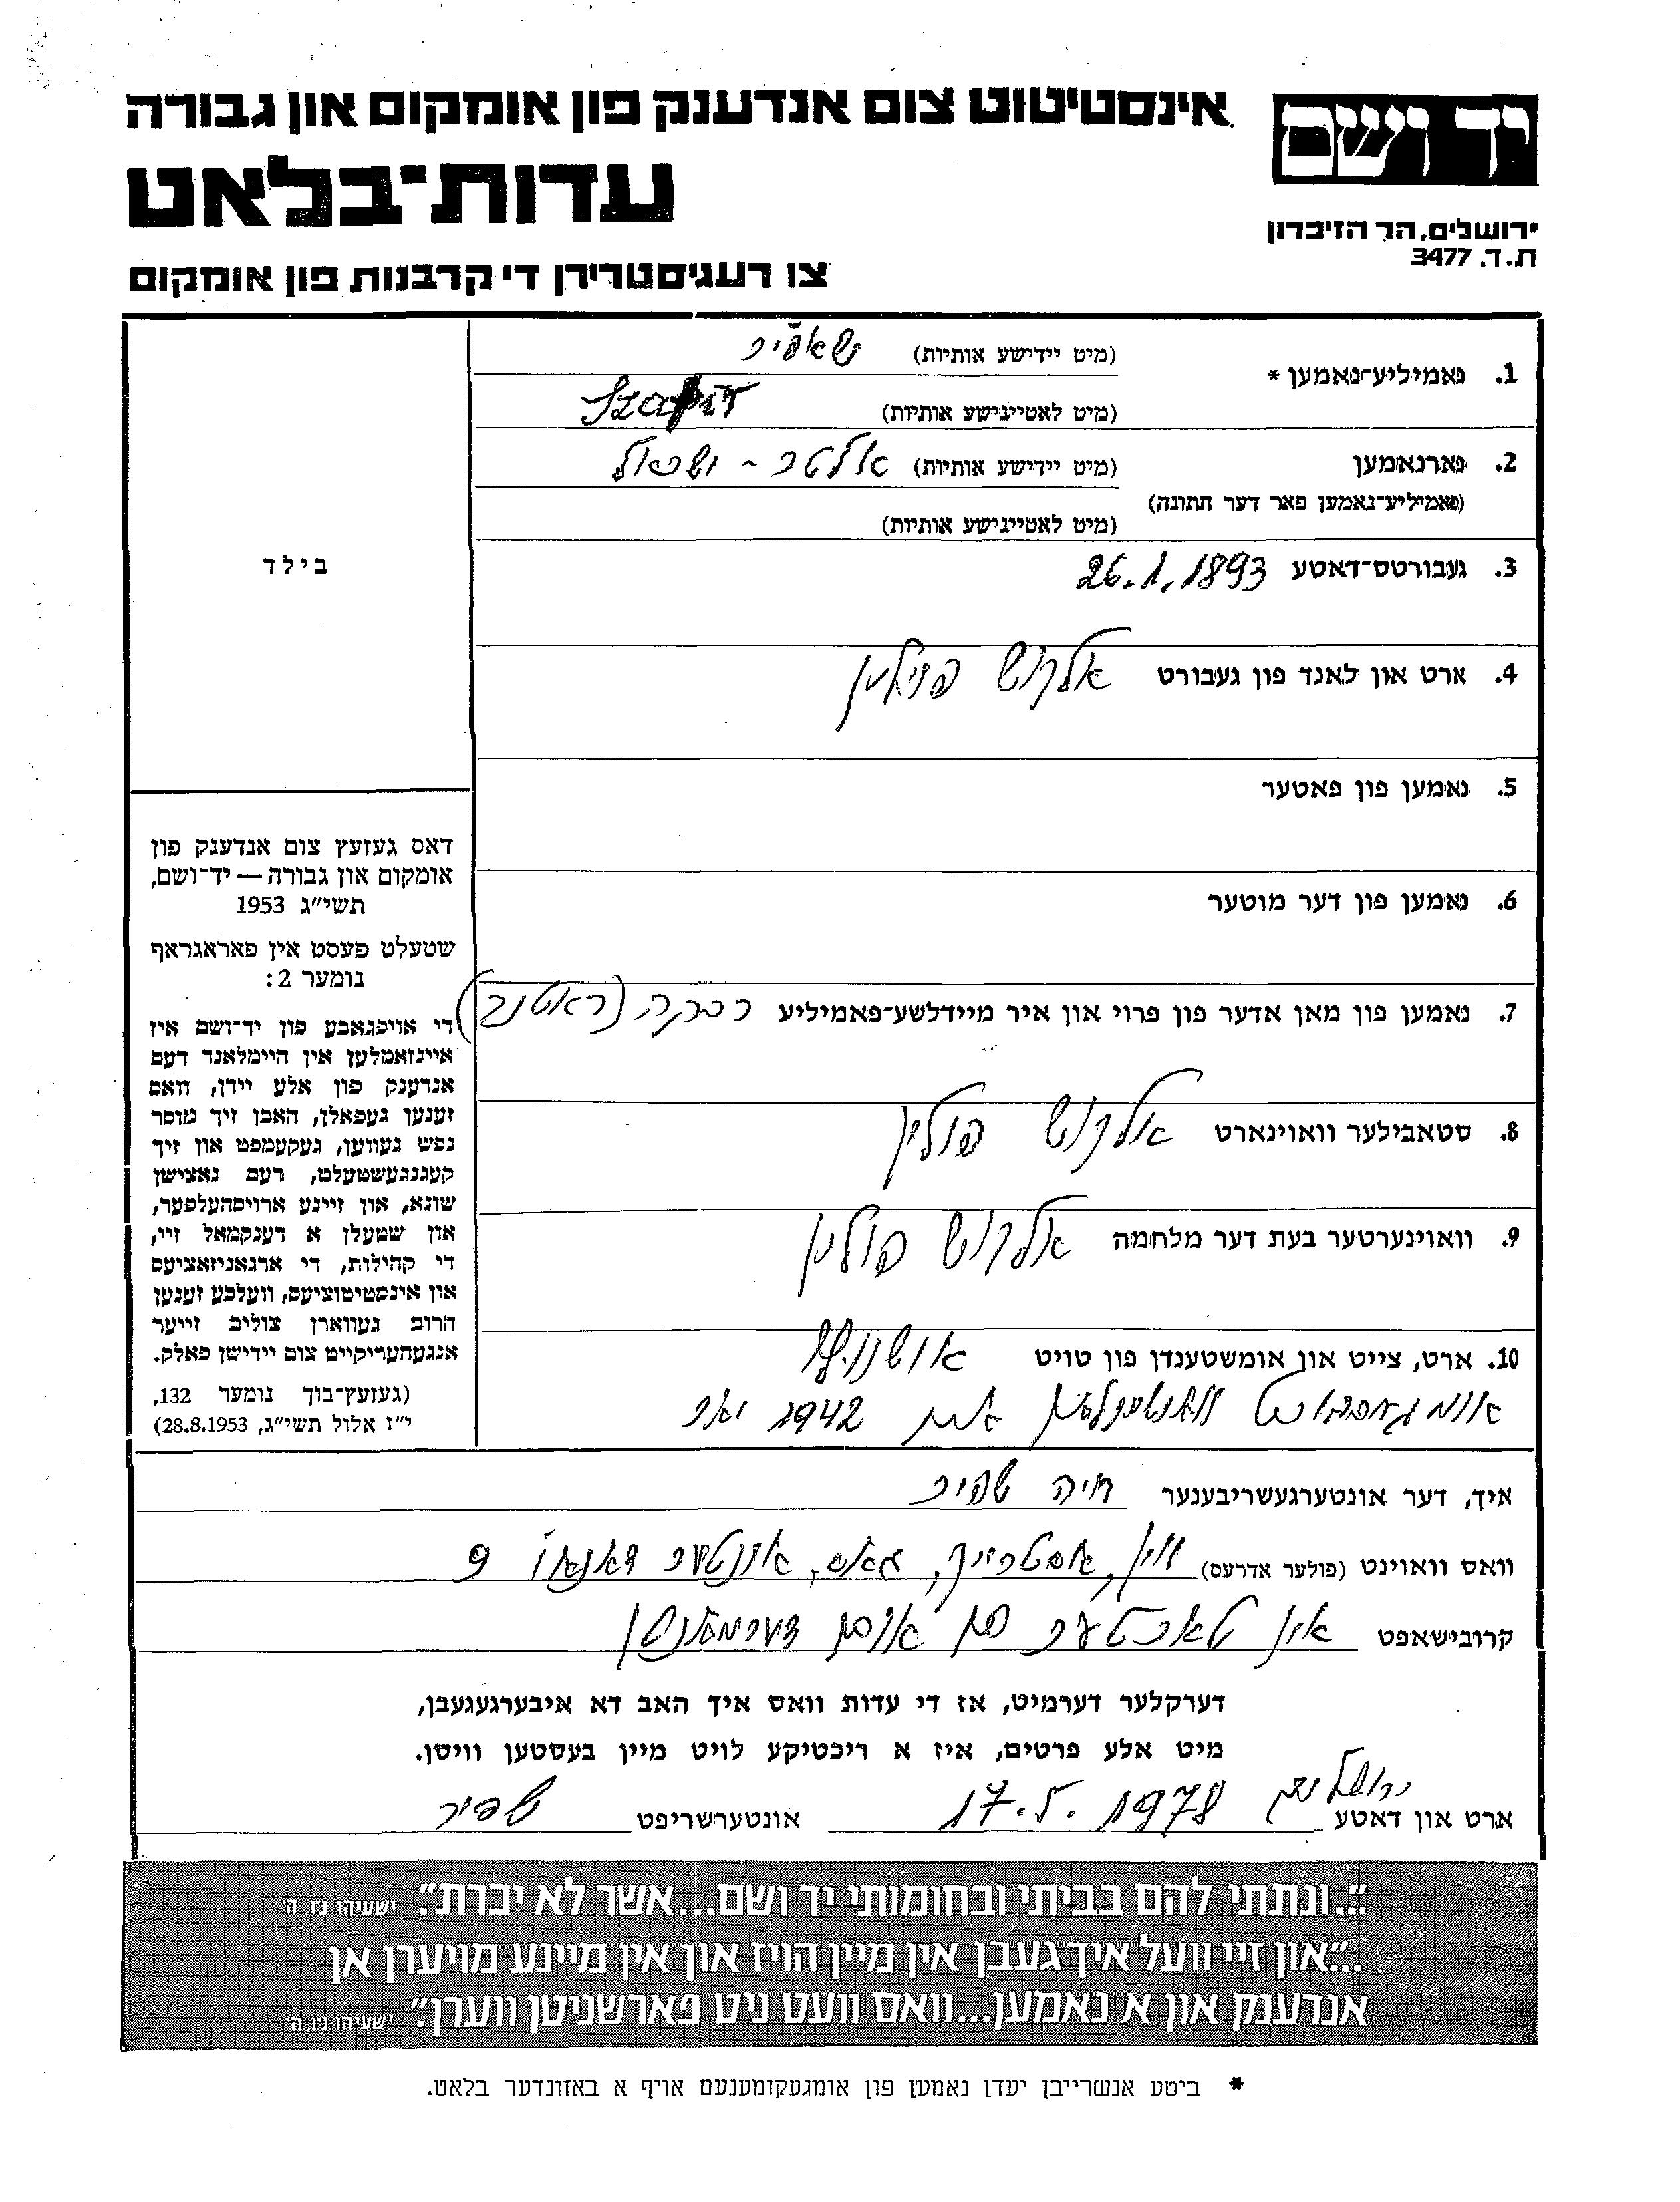 אינסטיטוט צום אנדענק פון אומקום און גבורה
יד ושם
עדות־בלאט
ירושלים, הר הזיכרון
ת.ד. 3477
צו רעגיסטרירן די קרבנות פון אומקום
1. פאמיליע־נאמען * (מיט יידישע אותיות) שאפיר
(מיט לאטיינישע אותיות) Szapir
2. פארנאמען (מיט יידישע אותיות) אלטר - ישראל
(פאמיליע־נאמען פאר דער חתונה)
(מיט לאטיינישע אותיות)
בילד
3. געבורטס־דאטע 26.1.1893
4. ארט און לאנד פון געבורט אלקוש פוילין
5. נאמען פון פאטער
6. נאמען פון דער מוטער
7. נאמען פון מאן אדער פון פרוי און איר מיידלשע־פאמיליע רבקה (ראטנר)
8. סטאבילער וואוינארט אלקוש פולין
9. וואוינערטער בעת דער מלחמה אלקוש פולין
10. ארט, צייט און אומשטענדן פון טויט אושוויץ
אומגעבראכט אין 1942 יאר
דאס געזעץ צום אנדענק פון
אומקום און גבורה — יד־ושם,
תשי״ג 1953
שטעלט פעסט אין פאראגראף
נומער 2:
די אויפגאבע פון יד־ושם איז
איינזאמלען אין היימלאנד דעם
אנדענק פון אלע יידן, וואס
זענען געפאלן, האבן זיך מוסר
נפש געווען, געקעמפט און זיך
קעגנגעשטעלט, דעם נאצישן
שונא, און זיינע ארויסהעלפער,
און שטעלן א דענקמאל זיי,
די קהילות, די ארגאניזאציעס
און אינסטיטוציעס, וועלכע זענען
חרוב געווארן צוליב זייער
אנגעהעריקייט צום יידישן פאלק.
(געזעץ־בוך נומער 132,
י״ז אלול תשי״ג, 28.8.1953)
איך, דער אונטערגעשריבענער חיה שפיר
וואס וואוינט (פולער אדרעס) ווין, אסטרייך, גאס, אונטער דאנאו 9
קרובישאפט אין טאכטער פון אויבן דערמאנטן
דערקלער דערמיט, אז די עדות וואס איך האב דא איבערגעגעבן,
מיט אלע פרטים, איז א ריכטיקע לויט מיין בעסטען וויסן.
ארט און דאטע ירושלים 17.5.1978 אונטערשריפט שפיר
״...ונתתי להם בביתי ובחומותי יד ושם...אשר לא יכרת״. ישעיהו נ״ו ה׳
...״און זיי וועל איך געבן אין מיין הויז און אין מיינע מויערן אן
אנדענק און א נאמען...וואס וועט ניט פארשניטן ווערן״. ישעיהו נ״ו ה׳
* ביטע אנשרייבן יעדן נאמען פון אומגעקומענעם אויף א באזונדער בלאט.